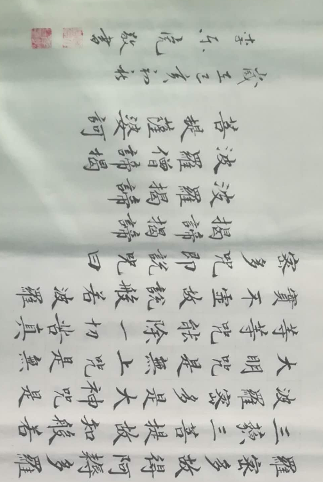 羅蜜多故得阿耨多羅
三藐三菩提故知般若
波羅蜜多是大神咒是
大明咒是無上咒是無
等等咒能除一切苦真
實不虛故說般若波羅
蜜多咒即說咒曰
揭諦揭諦
波羅揭諦
波羅僧揭諦
菩提薩婆訶
歲在己亥初秋
敬書